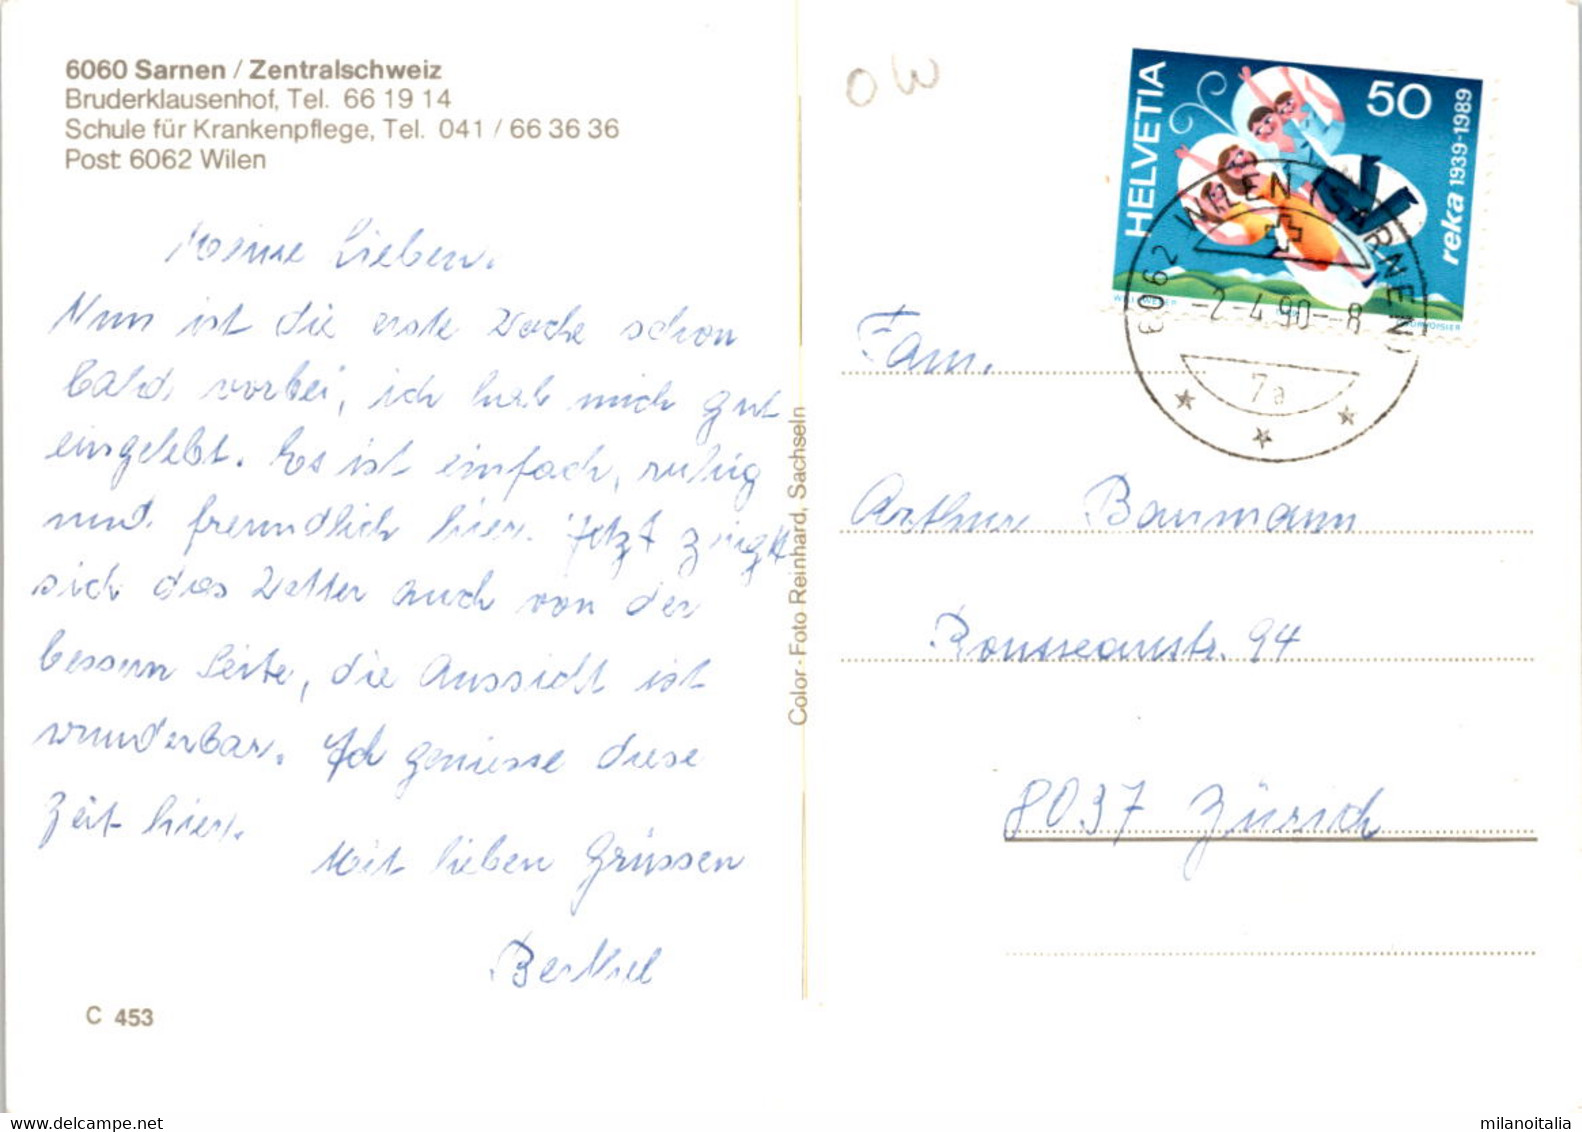 6060 Sarnen / Zentralschweiz
Bruderklausenhof, Tel. 66 19 14
Schule für Krankenpflege, Tel. 041 / 66 36 36
Post: 6062 Wilen
Meine Lieben.
Nun ist die erste Woche schon
bald vorbei, ich hab mich gut
eingelebt. Es ist einfach, ruhig
und freundlich hier. Jetzt zeigt
sich das Wetter auch von der
bessern Seite, die Aussicht ist
wunderbar. Ich geniesse diese
Zeit hier.
Mit lieben Grüssen
C 453
Color-Foto Reinhard, Sachseln
OW
HELVETIA
50
reka 1939-1989
COURVOISIER
6062 WILEN (SARNEN)
-2.-4.90--8
7a
Fam.
Arthur Baumann
Rousseaustr. 94
8037 Zürich
www.delcampe.net
milanoitalia